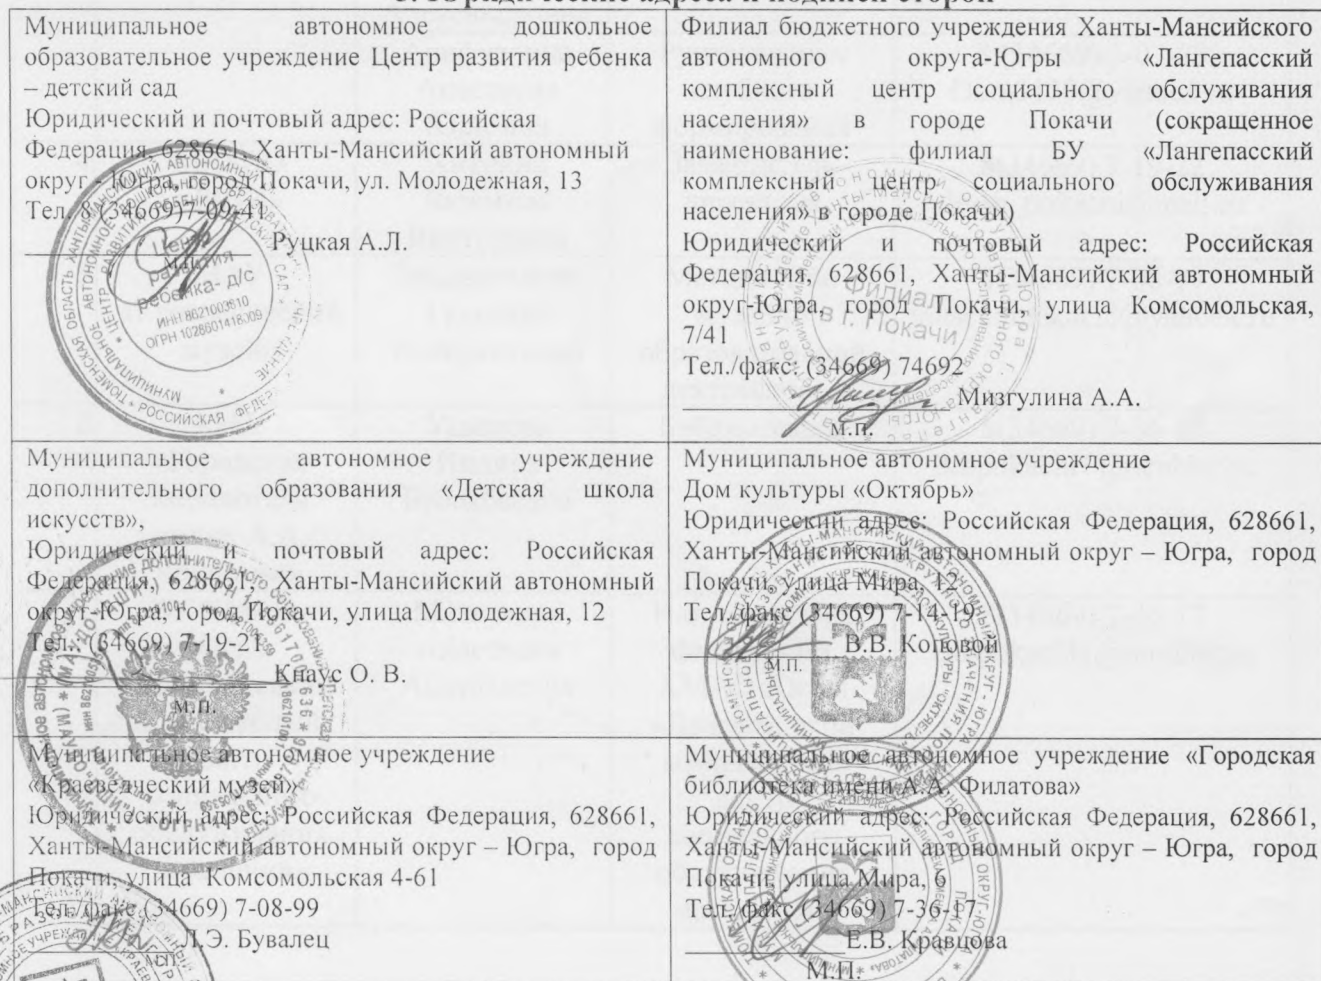 Муниципальное автономное дошкольное
образовательное учреждение Центр развития ребенка
– детский сад
Юридический и почтовый адрес: Российская
Федерация, 628661, Ханты-Мансийский автономный
округ - Югра, город Покачи, ул. Молодежная, 13
Тел. 8 (34669)7-09-41
Руцкая А.Л.
М.П.
Центр
развития
ребенка- д/с
ИНН 8621003610
ОГРН 1028601418009
Филиал бюджетного учреждения Ханты-Мансийского
автономного округа-Югры «Лангепасский
комплексный центр социального обслуживания
населения» в городе Покачи (сокращенное
наименование: филиал БУ «Лангепасский
комплексный центр социального обслуживания
населения» в городе Покачи)
Юридический и почтовый адрес: Российская
Федерация, 628661, Ханты-Мансийский автономный
округ-Югра, город Покачи, улица Комсомольская,
7/41
Тел./факс: (34669) 74692
Мизгулина А.А.
м.п.
Филиал
в г. Покачи
Муниципальное автономное учреждение
дополнительного образования «Детская школа
искусств»,
Юридический и почтовый адрес: Российская
Федерация, 628661, Ханты-Мансийский автономный
округ-Югра, город Покачи, улица Молодежная, 12
Тел.: (34669) 7-19-21
Кнаус О. В.
м.п.
Муниципальное автономное учреждение
Дом культуры «Октябрь»
Юридический адрес: Российская Федерация, 628661,
Ханты-Мансийский автономный округ – Югра, город
Покачи, улица Мира, 12
Тел./факс (34669) 7-14-19
В.В. Коповой
м.п.
Муниципальное автономное учреждение
«Краеведческий музей»
Юридический адрес: Российская Федерация, 628661,
Ханты-Мансийский автономный округ – Югра, город
Покачи, улица Комсомольская 4-61
Тел./факс (34669) 7-08-99
Л.Э. Бувалец
Муниципальное автономное учреждение «Городская
библиотека имени А.А. Филатова»
Юридический адрес: Российская Федерация, 628661,
Ханты-Мансийский автономный округ – Югра, город
Покачи, улица Мира, 6
Тел./факс (34669) 7-36-17
Е.В. Кравцова
М.П.